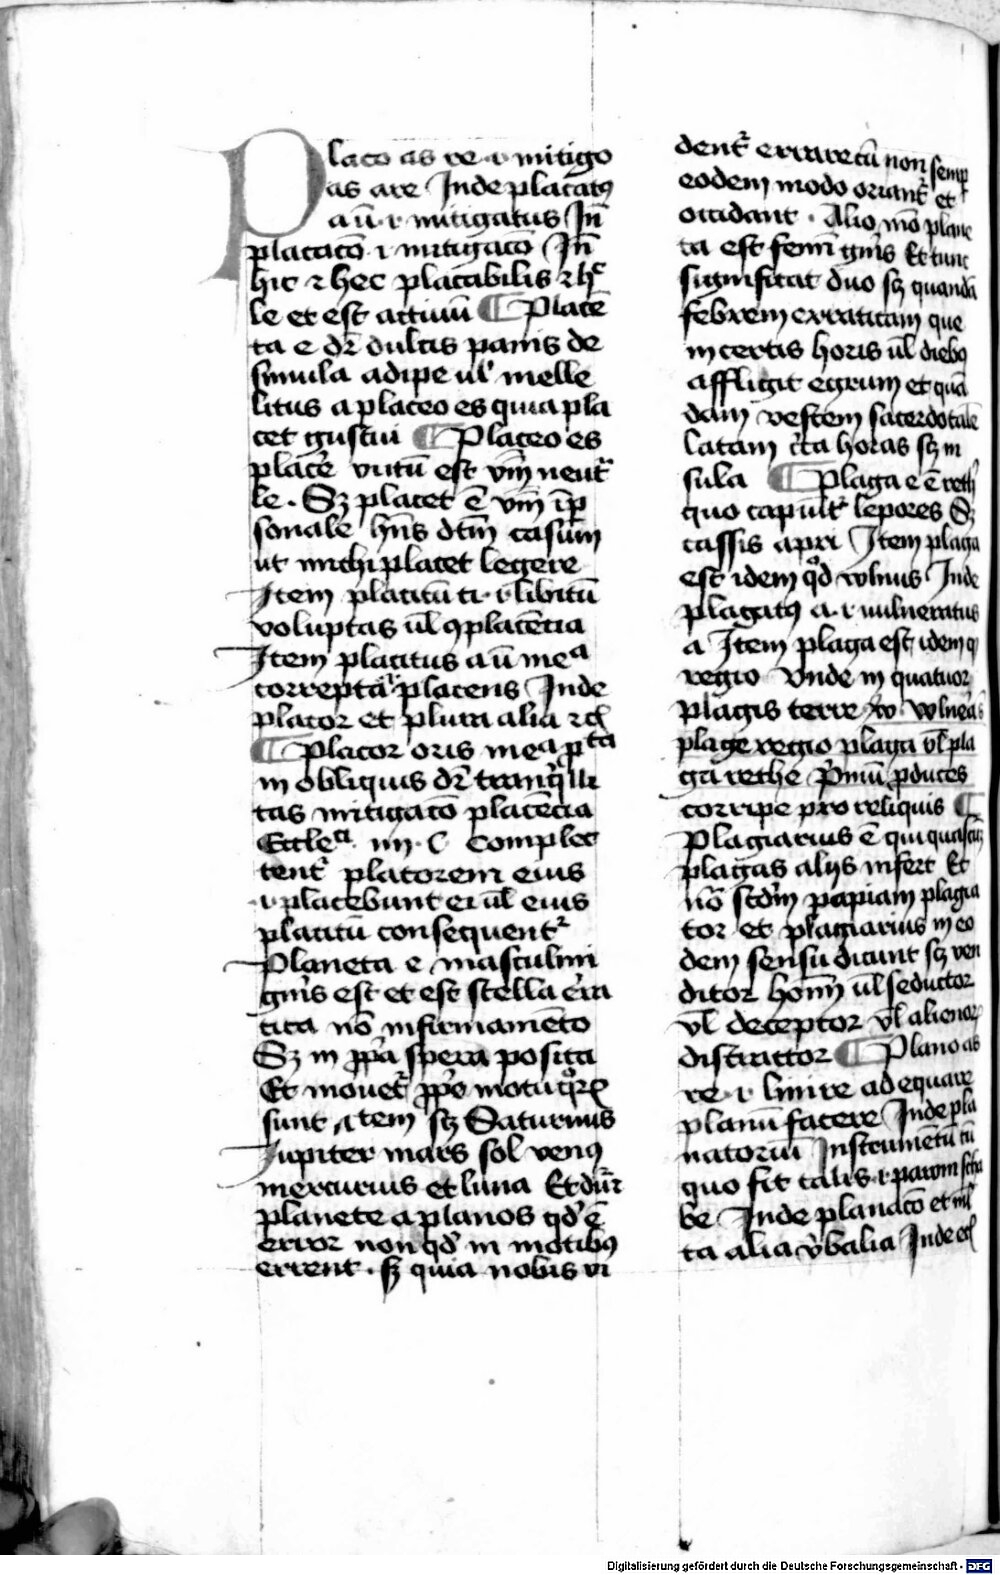 Placo as re .i. mitigo
as are Inde placatꝰ
a ū .i. mitigatus Jn̄
placacō .i. mitigacō Jn̄
hic ⁊ hec placabilis ⁊ hͨ
le et est actiuū ¶ Placē
ta e dr̄ dulcis panis de
simula adipe ul̓ melle
litus a placeo es quia pla
cet gustui ¶ Placeo es
placē̓ uirtū est vm̄ neut᷑
le . Sꝫ placet ē vm̄ īp̲
sonale hn̄s dtm̄ casum
ut michi placet legere
Item placitū ti .i. libitū
voluptas ul̓ ꝯplacētia
Item placitus a ū meᵃ
correpta .i. placens Inde
placor et plura alia ⁊cͣ
¶ Placor oris meᵃ pͭᵃ
in obliquis dr̄ tranqͥlli
tas mitigacō placētia
Eccleᶜⁱ. iiii . C Complec
tent᷑ placorem eius
.i. placebunt ei ul̓ eius
placitū consequent᷑
Planeta e masculini
gn̄is est et est stella er̓ra
tica nō in firmamēto
Sꝫ in ꝓp̓a spera posita
Et mouet᷑ ꝓp̓o motu qͦꝝ
sunt .item sꝫ Saturnus
Jupiter mars sol venꝰ
mercurius et luna Et dūr
planete a planos qd̓ ē
error non qd̓ in motibꝰ
errent . sꝫ quia nobis vi
dent᷑ errare cū non semp̲
eodem modo oriant᷑ et
occidant . Alio mō plane
ta est femī gn̄is Et tunc
significat duo sꝫ quandā
febrem erraticam que
incertis horis ul̓ diebꝰ
affligit egrum et quā
dam vestem sacerdotalē
latam cͬca horas sꝫ in
sula ¶ Plaga e ē reth̓
quo capiūt᷑ lepores Sꝫ
cassis apri Item plaga
est idem qͦd wlnus Inde
plagatꝰ a .i. uulneratus
a Item plaga est idem qͥ
regio Vnde in quatuor
plagis terre wlnera̓s
plage regio plaga vl̓ pla
ga rethe p̓mū ꝓduces
corripe pro reliquis ¶
Plagiarius ē qui quascūqꝫ
plagas alijs infert Et
nō scdm̄ papiam plagia
tor et plagiarius in eo
dem sensu dicunt sꝫ ven
ditor homī ul̓ seductor
vl̓ deceptor vl̓ alienoꝝ
distractor ¶ Plano as
re .i. linire adequare
planū facere Inde pla
natoriū Instrumētū cū
quo fit talis .i. parom scha
be Inde planacō et ml̓
ta alia v̓balia Inde
Digitalisierung gefördert durch die Deutsche Forschungsgemeinschaft - DFG